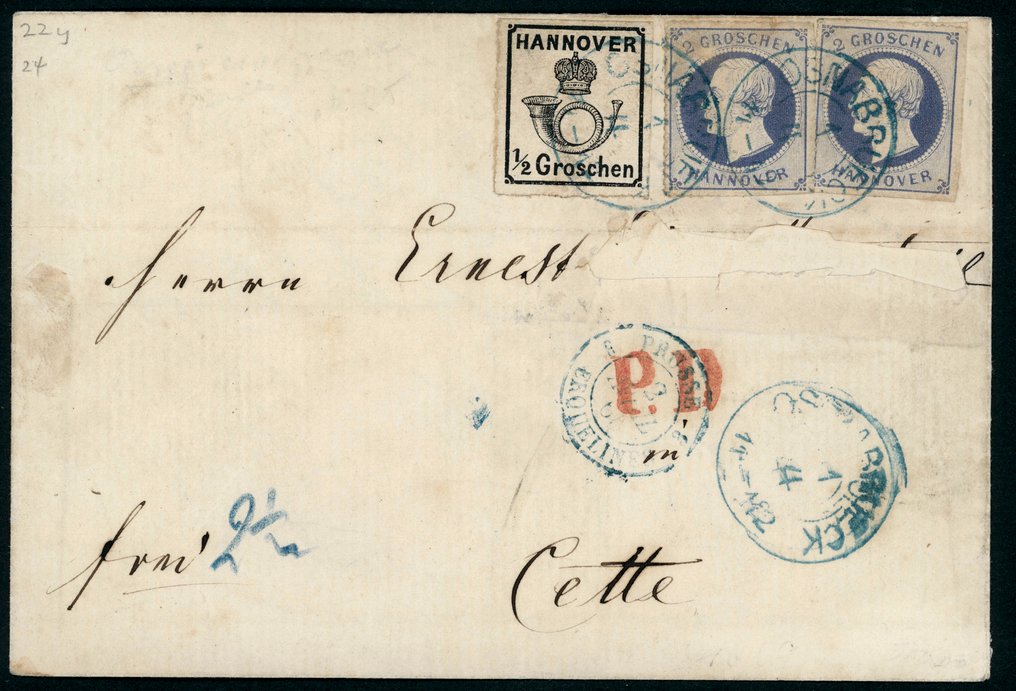 22 y
24
HANNOVER
1/2 Groschen
2 GROSCHEN
HANNOVER
2 GROSCHEN
HANNOVER
OSNABR
OSNABR
Herrn Ernest
P.D
PRUSSE
ERQUELINES
m'
OSNABRUECK
1
4
frei 2 1/2
Cette